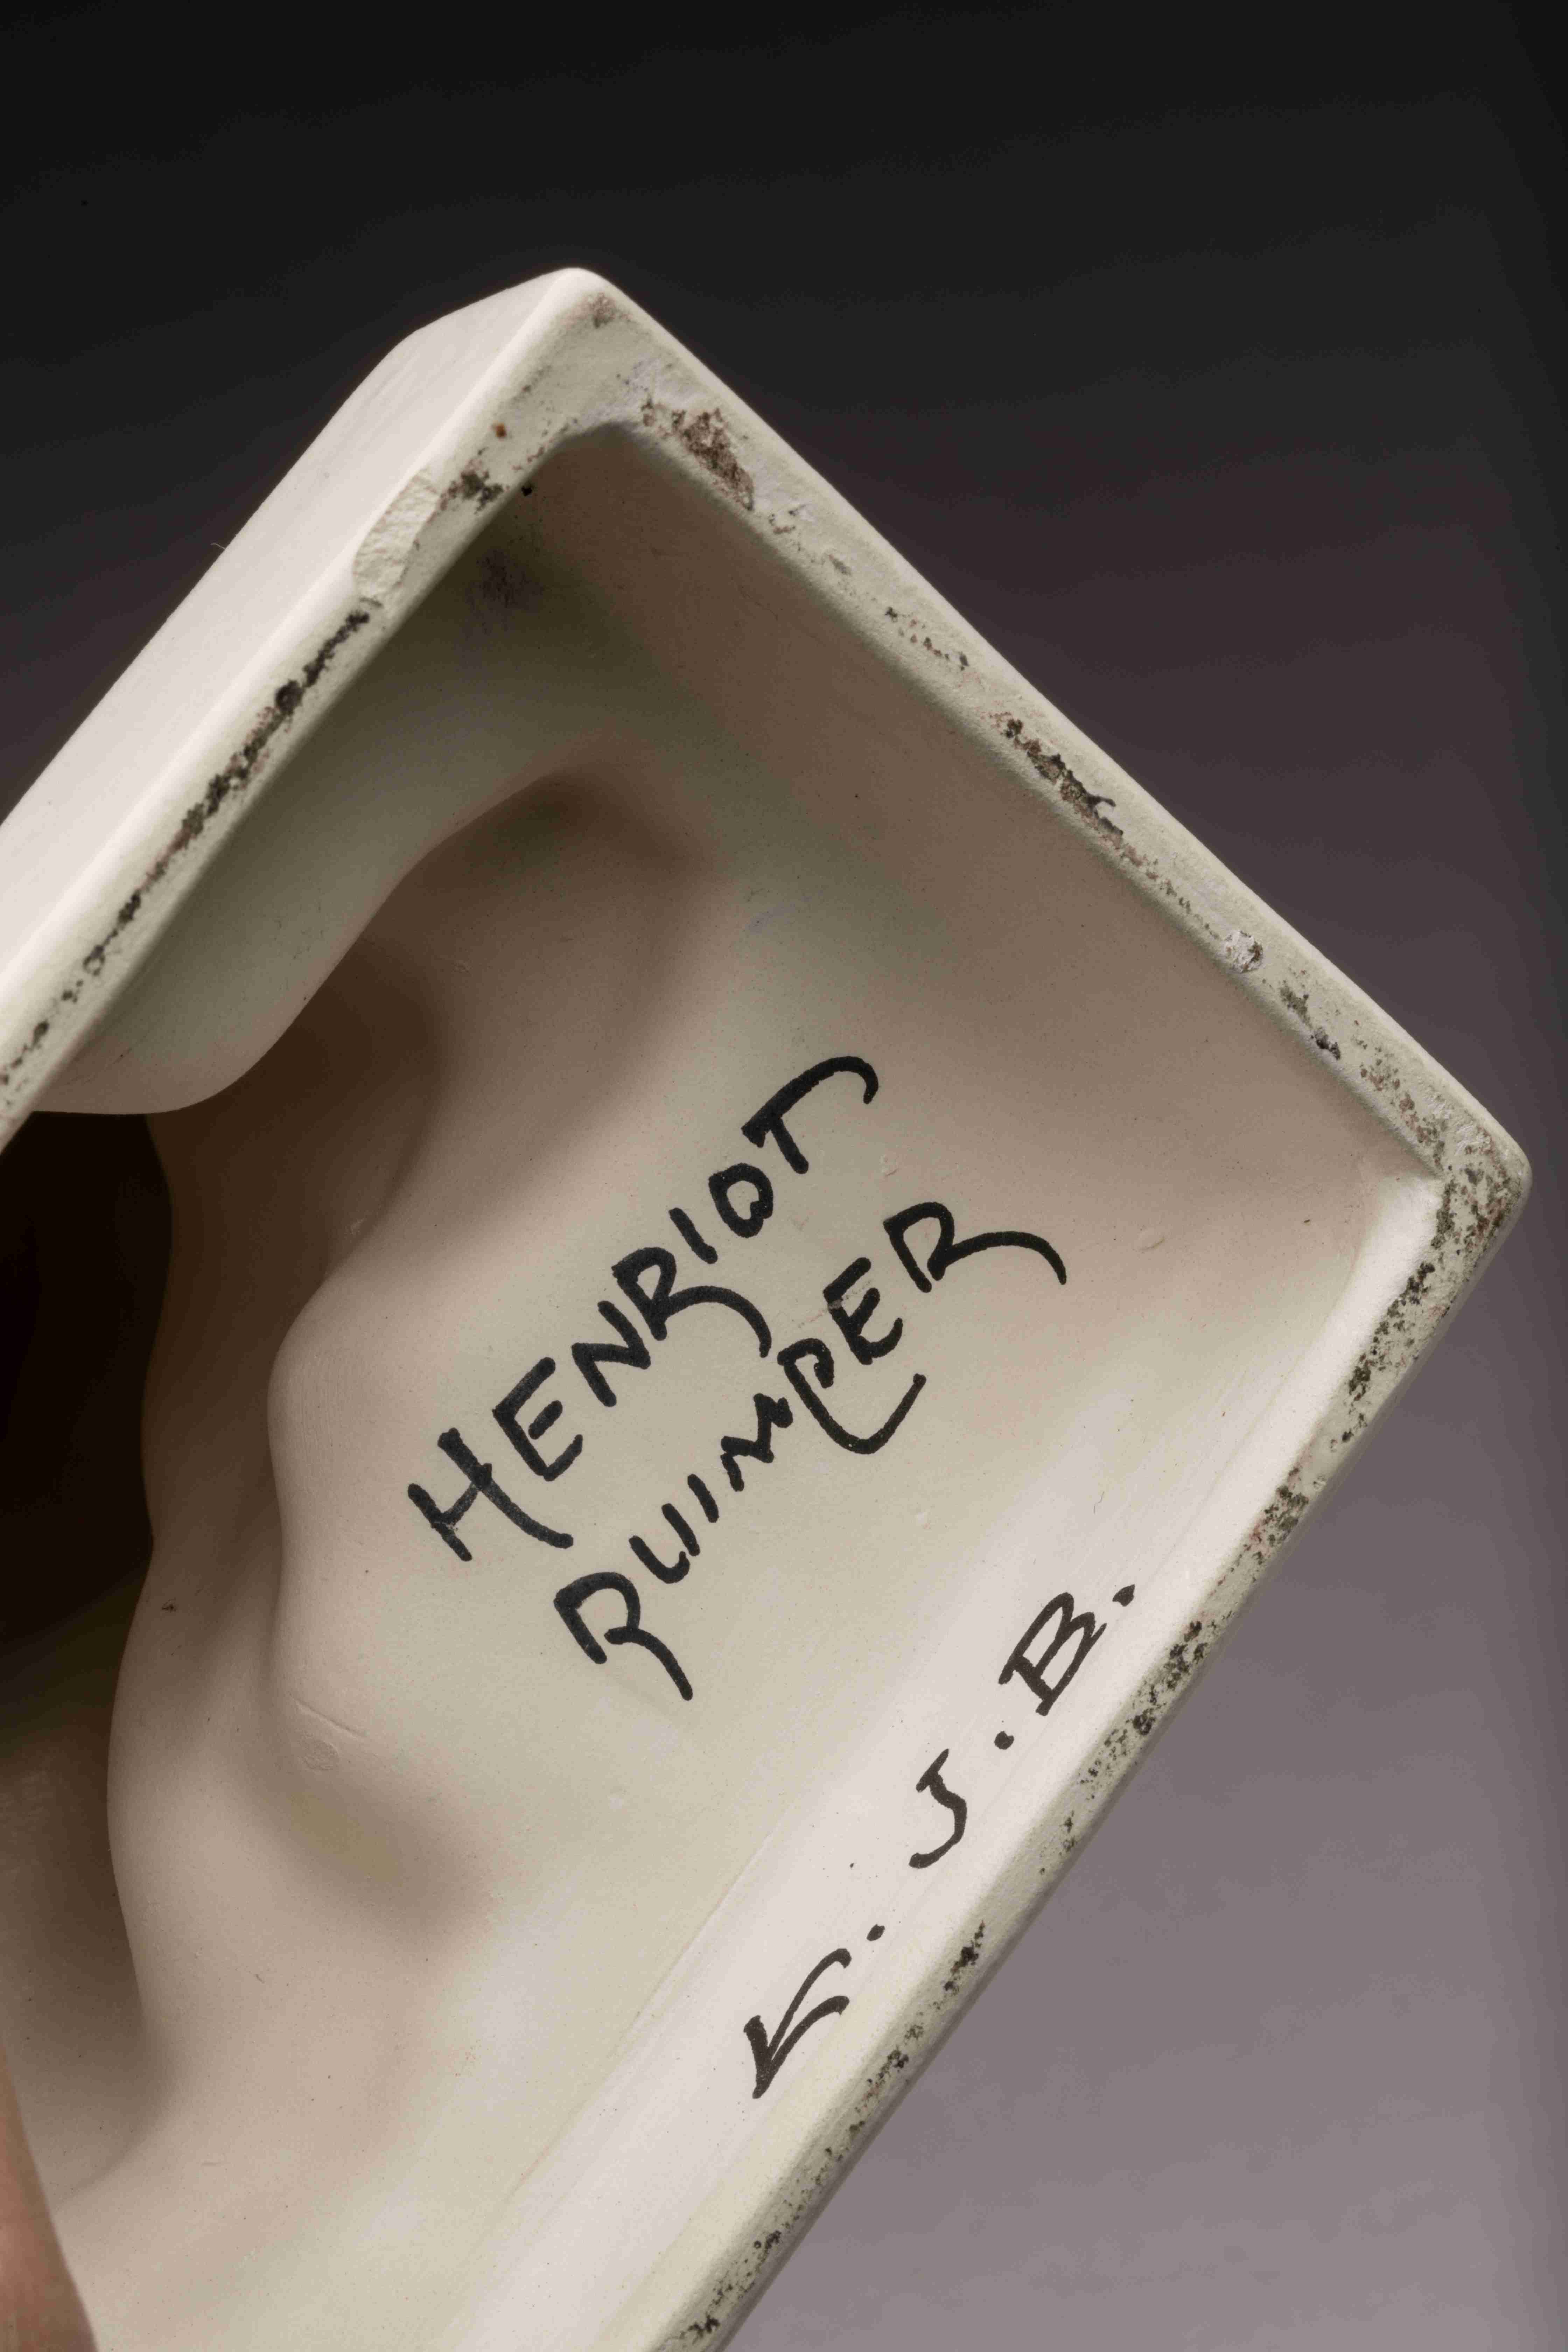 HENRIOT
QUIMPER
K. J. B.